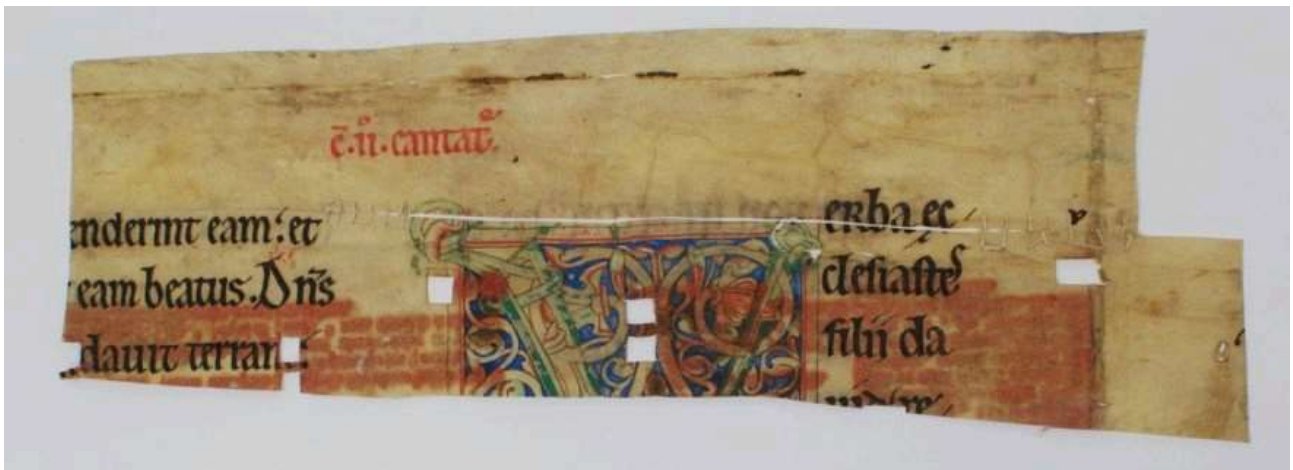 c̄.íı.cantat͛
enderınt eam: et
eam beatus. Dn̄s
dauıt terram:
erba ec
clesiastes
filij da